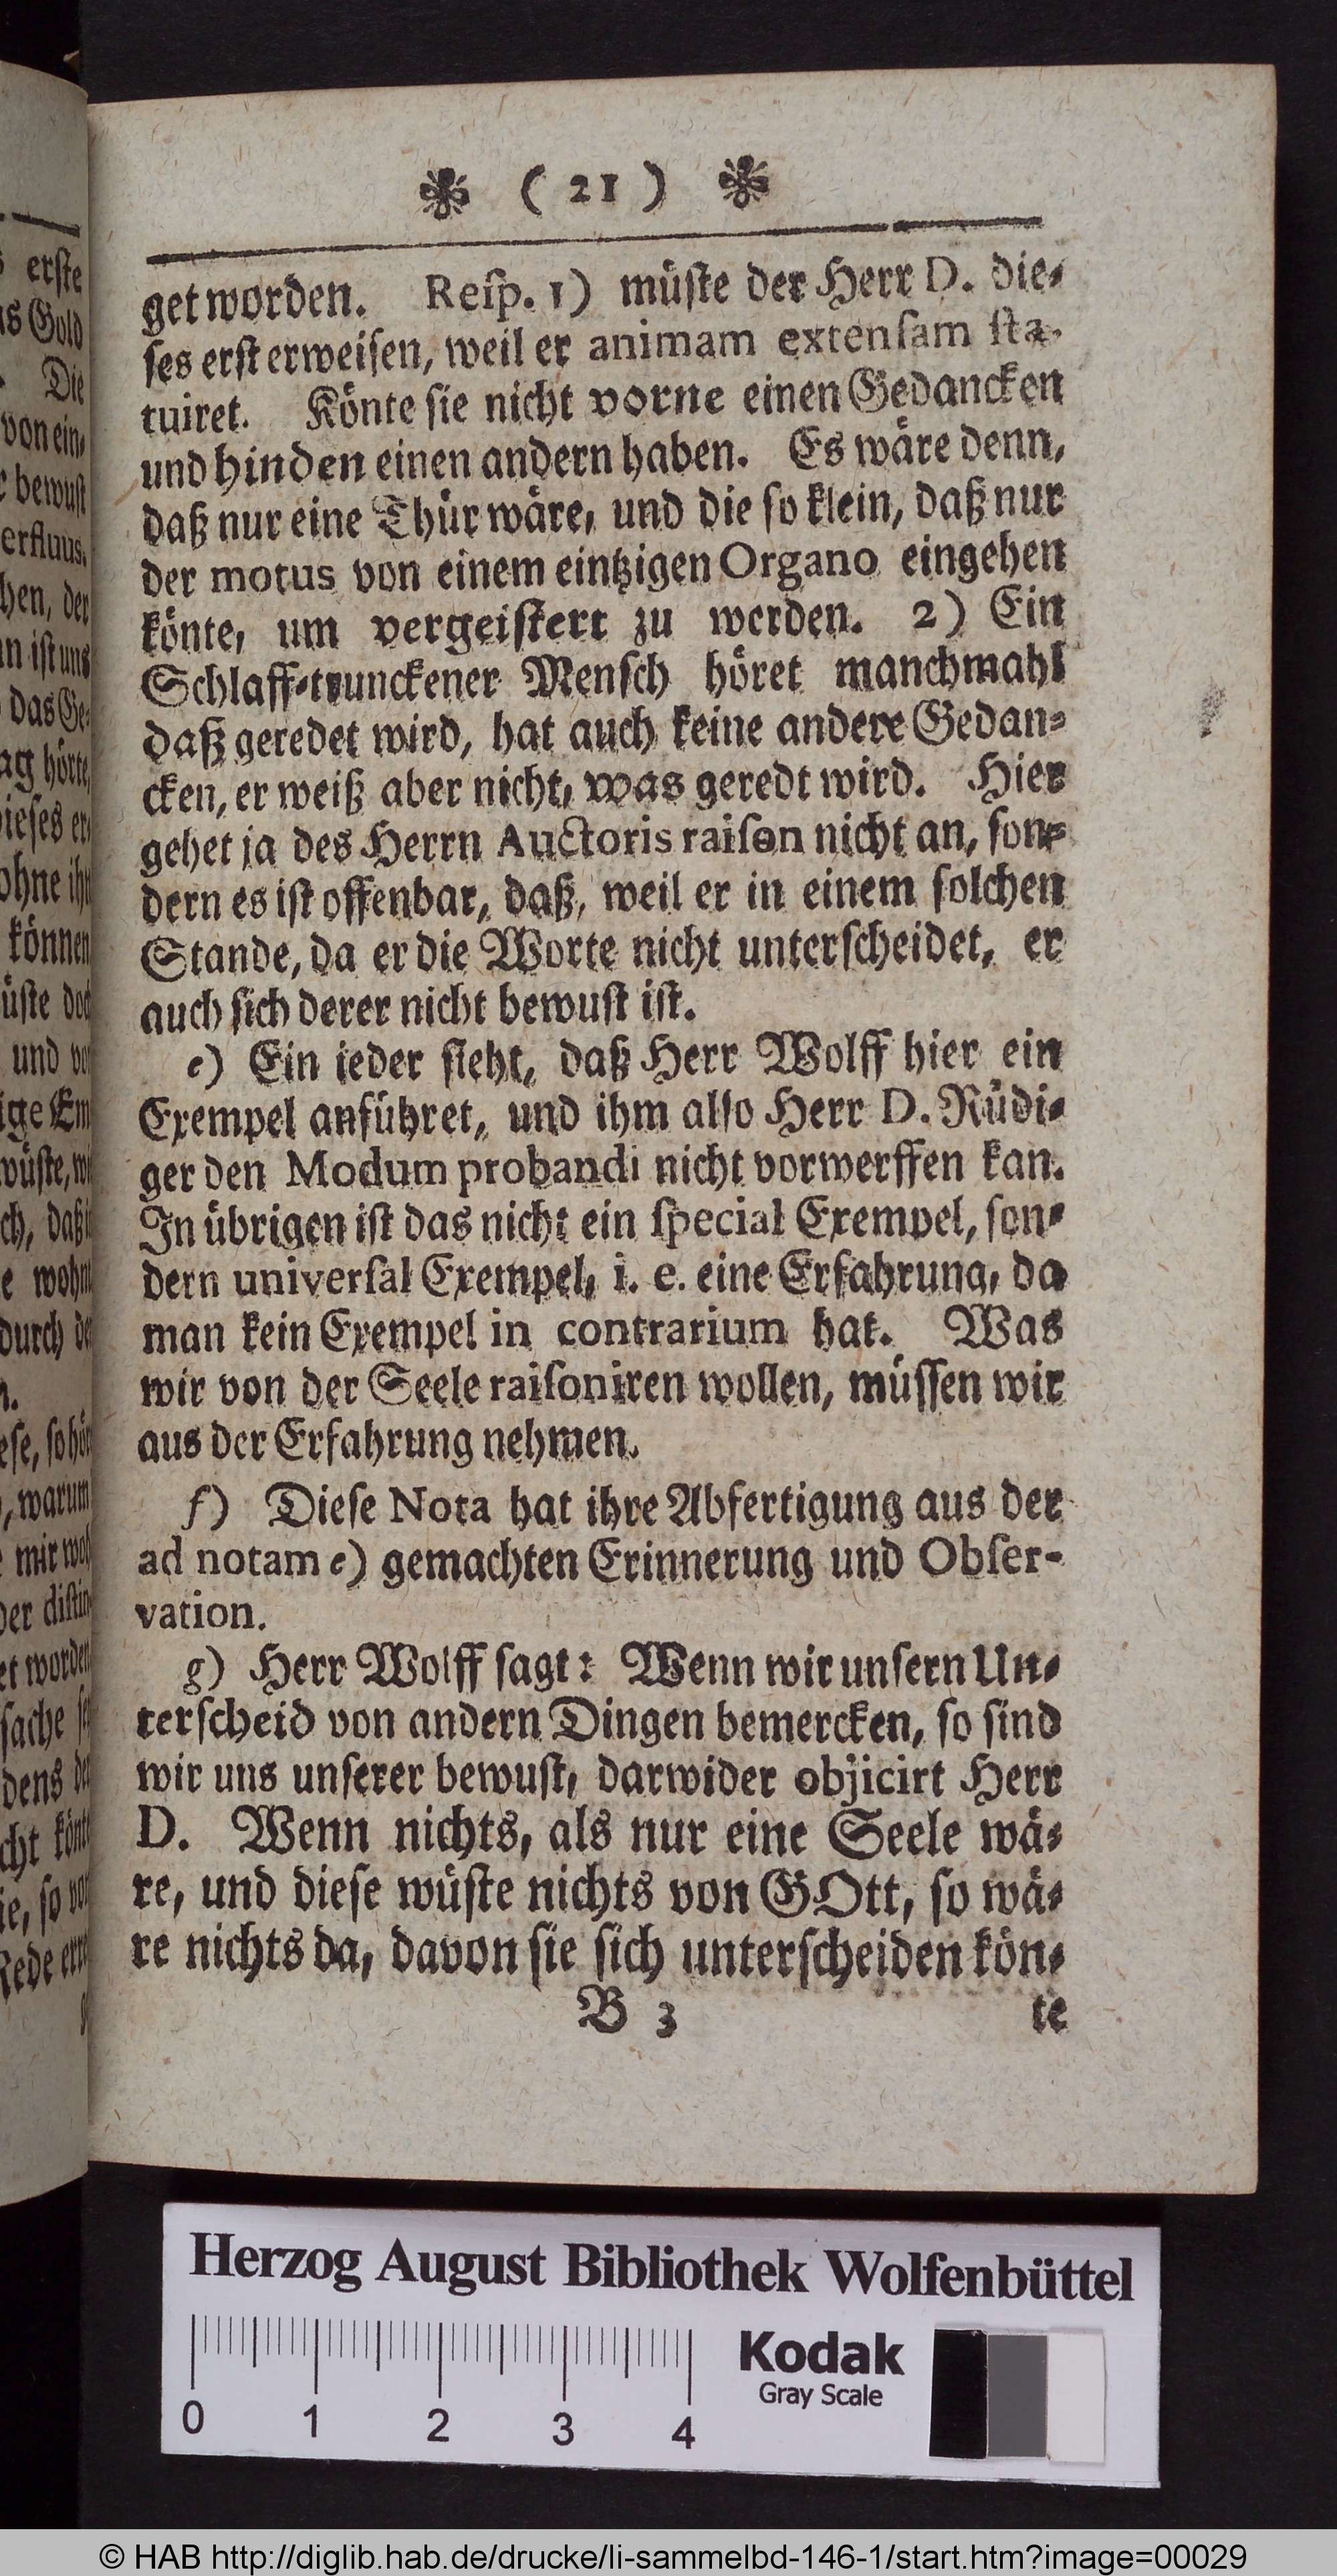 ( 21 )
get worden. Resp. 1) müste der Herr D. die-
ses erst erweisen, weil er animam extensam sta-
tuiret. Könte sie nicht vorne einen Gedancken
und hinden einen andern haben. Es wäre denn,
daß nur eine Thür wäre, und die so klein, daß nur
der motus von einem eintzigen Organo eingehen
könte, um vergeistert zu werden. 2) Ein
Schlaff-trunckener Mensch höret manchmahl
daß geredet wird, hat auch keine andere Gedan-
cken, er weiß aber nicht, was geredt wird. Hier
gehet ja des Herrn Auctoris raison nicht an, son-
dern es ist offenbar, daß, weil er in einem solchen
Stande, da er die Worte nicht unterscheidet, er
auch sich derer nicht bewust ist.
e) Ein ieder sieht, daß Herr Wolff hier ein
Exempel anführet, und ihm also Herr D. Rüdi-
ger den Modum probandi nicht vorwerffen kan.
In übrigen ist das nicht ein special Exempel, son-
dern universal Exempel, i. e. eine Erfahrung, da
man kein Exempel in contrarium hat. Was
wir von der Seele raisoniren wollen, müssen wir
aus der Erfahrung nehmen.
f) Diese Nota hat ihre Abfertigung aus der
ad notam e) gemachten Erinnerung und Obser-
vation.
g) Herr Wolff sagt: Wenn wir unsern Un-
terscheid von andern Dingen bemercken, so sind
wir uns unserer bewust, darwider objicirt Herr
D. Wenn nichts, als nur eine Seele wä-
re, und diese wüste nichts von GOtt, so wä-
re nichts da, davon sie sich unterscheiden kön-
B 3 te
Herzog August Bibliothek Wolfenbüttel
Kodak
Gray Scale
0 1 2 3 4
© HAB http://diglib.hab.de/drucke/li-sammelbd-146-1/start.htm?image=00029